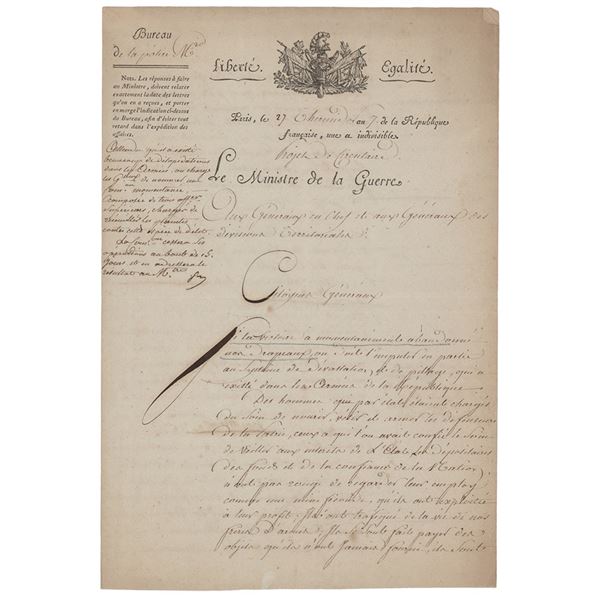 Bureau
de la police M.re
NOTA. Les réponses à faire
au Ministre, doivent relater
exactement la date des lettres
qu'on en a reçues, et porter
en marge l'indication ci-dessus
du Bureau, afin d'éviter tout
retard dans l'expédition des
affaires.
Liberté. Egalité.
Paris, le 27 an 7.e de la République
française, une et indivisible.
Projet de Circulaire.
Le Ministre de la Guerre
Aux Généraux en Chef et aux Généraux des
divisions territoriales.
dans les Armées, au chargé
G.aux de nommer une
momentanée
Composée de trois offers
Supérieurs, chargés de
recueillir les plaintes
contre cette espèce de délit.
La cessera ses
opérations au bout de 15
Jours et en adressera le
resultat au M.re
Citoyens Généraux
Si la victoire a momentanément abandonné
nos drapeaux, on doit l'imputer en partie
au systeme de dévastation, et de pillage, qui a
existé dans les Armées de la République
Des hommes que par état étaient chargés
du soin de nourir, vêtir et armer les défenseurs
de la Patrie, ceux à qui l'on avait confié le soin
de veiller aux interets de l'Etat, les dépositaires
des fonds et de la confiance de la Nation
n'ont pas rougi de regarder leur emploi
comme une mine féconde, qu'ils ont exploitée
à leur profit. Ils ont trafiqué de la vie de nos
frères d'armes, ils se sont fait payer des
objets qu'ils n'ont jamais fournis, ils sont